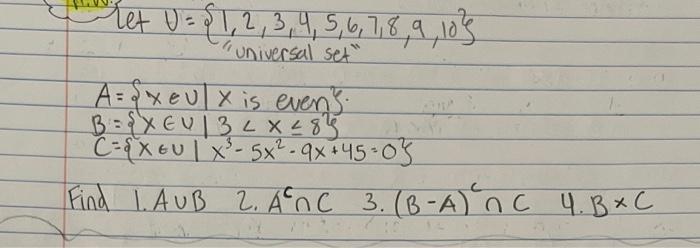 Let U = {1, 2, 3, 4, 5, 6, 7, 8, 9, 10}
"universal set"
A = {x ∈ U | x is even}.
B = {x ∈ U | 3 < x ≤ 8}
C = {x ∈ U | x³ - 5x² - 9x + 45 = 0}
Find 1. A ∪ B 2. Aᶜ ∩ C 3. (B - A)ᶜ ∩ C 4. B × C